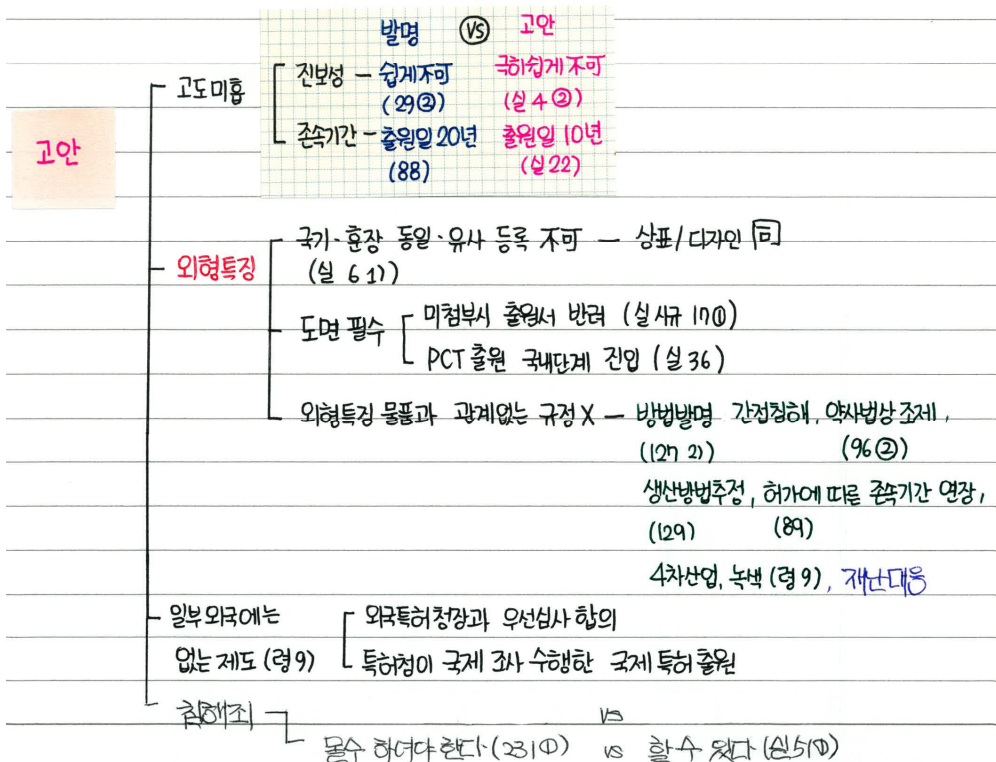 발명 VS 고안
진보성 - 쉽게不可 극히쉽게不可
(29②) (실4②)
존속기간 - 출원일 20년 출원일 10년
(88) (실22)
고도미흡
고안
외형특징
국기·훈장 동일·유사 등록 不可 - 상표/디자인 同
(실 6 1))
도면 필수
미첨부시 출원서 반려 (실시규 17①)
PCT 출원 국내단계 진입 (실36)
외형특징 물품과 관계없는 규정 X - 방법발명 간접침해, 약사법상 조제,
(127 2)) (96②)
생산방법추정, 허가에 따른 존속기간 연장,
(129) (89)
4차산업, 녹색 (령9), 재난대응
일부 외국에는
없는 제도 (령9)
외국특허청장과 우선심사 합의
특허청이 국제 조사 수행한 국제 특허 출원
침해죄
vs
몰수 하여야 한다 (231①) vs 할 수 있다 (실51①)